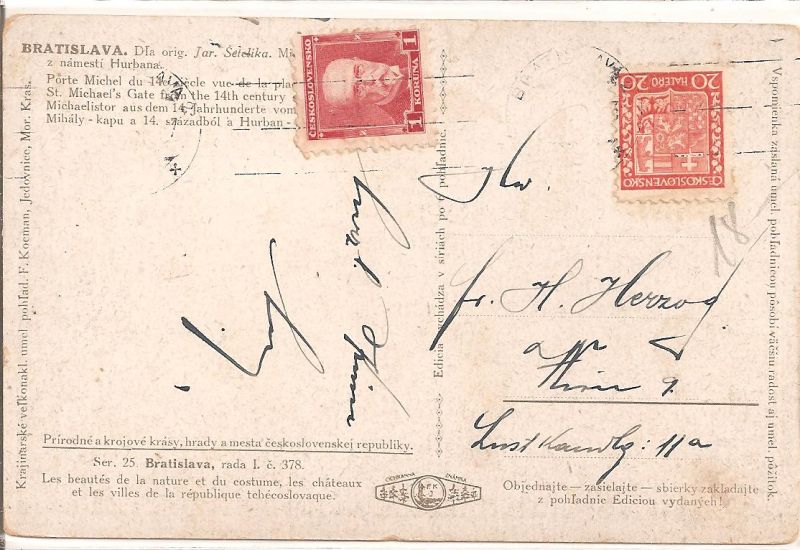 BRATISLAVA. Dľa orig. Jar. Šetelika. Mi
z námestí Hurbana.
Porte Michel du 14e siècle vue de la pla
St. Michael's Gate from the 14th century
Michaelistor aus dem 14. Jahrhunderte vom
Mihály - kapu a 14. századból a Hurban -
ČESKOSLOVENSKO
1 KORUNA 1
20 HALÉŘŮ 20
ČESKOSLOVENSKO
18
Krajinárske veľkonakl. umel pohľad. F. Kocman, Jedovnice, Mor. Kras.
Edícia vychádza v sériach po 6 pohľadnic.
Vspomienka záslaná umel. pohľadnicou pôsobí väčšnu radost aj umel pôžitok.
Fr. H. Herzog
Wien 9.
Lustkandlg: 11a
Prírodné a krojové krásy, hrady a mesta československej republiky.
Ser. 25. Bratislava, rada I. č. 378.
Les beautés de la nature et du costume, les châteaux
et les villes de la république tchécoslovaque.
OCHRANNÁ ZNÁMKA
Objednajte — zasielajte — sbierky zakladajte
z pohľadnie Ediciou vydaných!